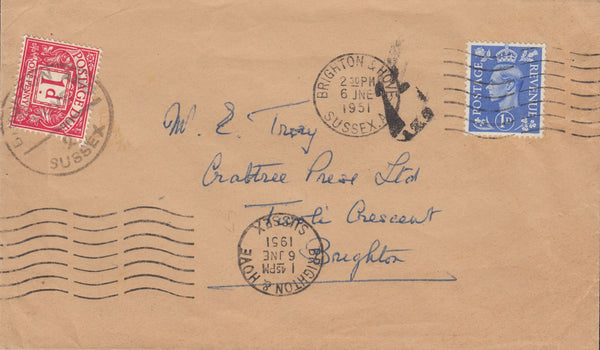 POSTAGE DUE
1D
SUSSEX
BRIGHTON & HOVE
2 30PM
6 JNE
1951
SUSSEX A
POSTAGE
REVENUE
1D
M. E. Troy
Crabtree Press Ltd
Tivoli Crescent
Brighton
BRIGHTON & HOVE
1 45PM
6 JNE
1951
SUSSEX